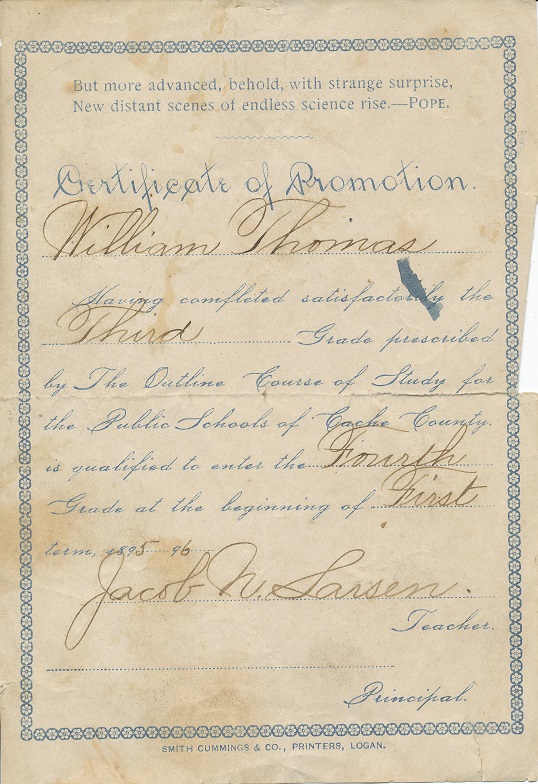 But more advanced, behold, with strange surprise,
New distant scenes of endless science rise.—POPE.
Certificate of Promotion.
William Thomas
Having completed satisfactorily the
Third Grade prescribed
by The Outline Course of Study for
the Public Schools of Cache County.
is qualified to enter the Fourth
Grade at the beginning of First
term, 1895 96
Jacob N. Larsen.
Teacher.
Principal.
SMITH CUMMINGS & CO., PRINTERS, LOGAN.